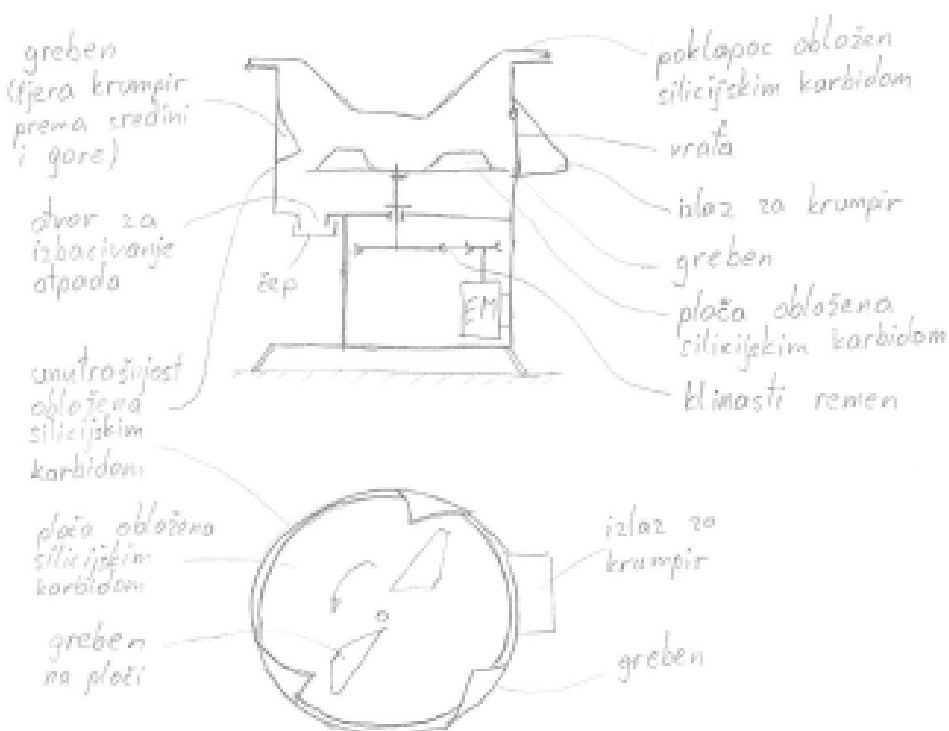 greben
(tjera krumpir
prema sredini
i gore)
otvor za
izbacivanje
otpada
čep
unutrašnjost
obložena
silicijskim
karbidom
poklopac obložen
silicijskim karbidom
vrata
izlaz za krumpir
greben
ploča obložena
silicijskim karbidom
klinasti remen
EM
ploča obložena
silicijskim
karbidom
greben
na ploči
izlaz za
krumpir
greben